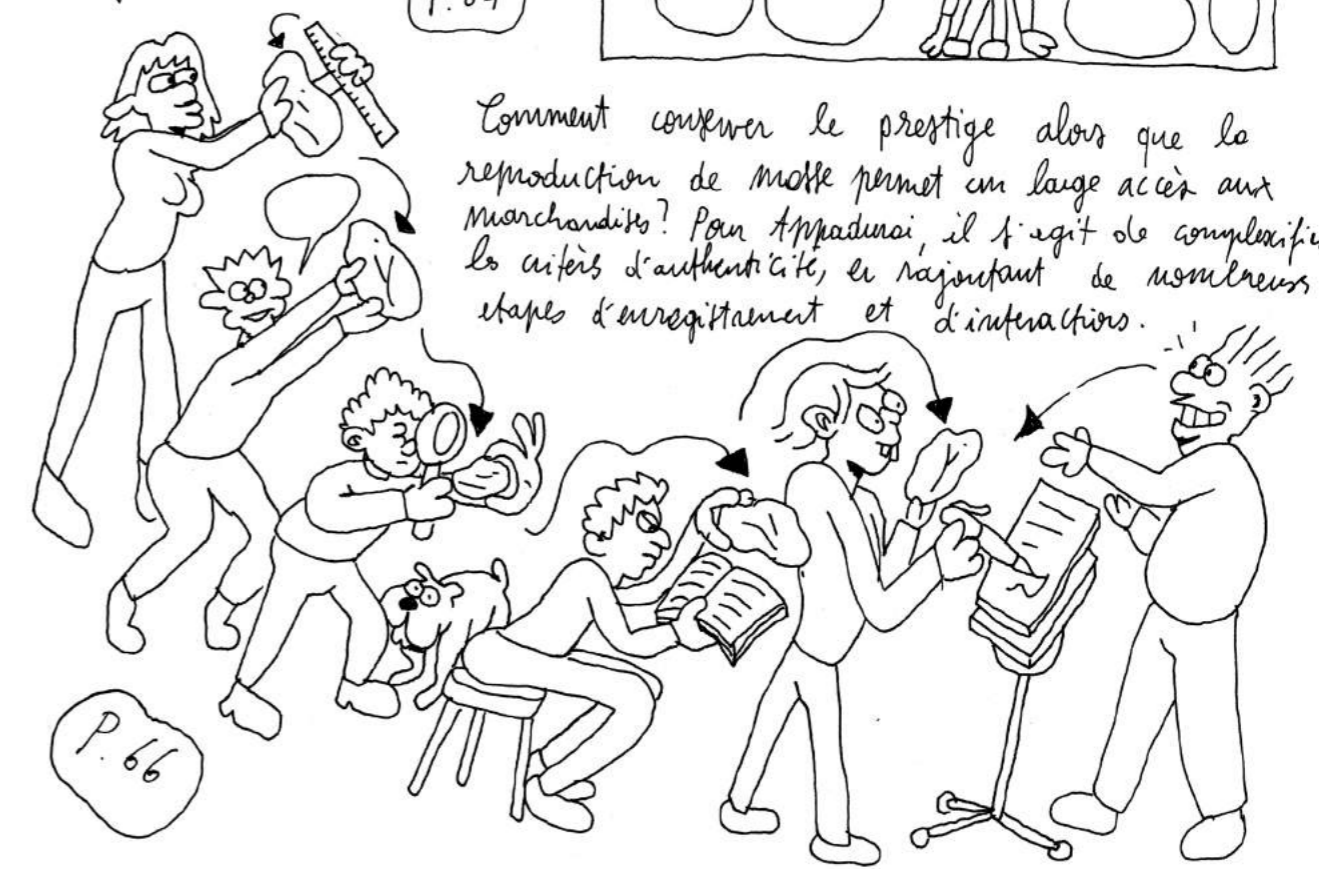 P. 64
Comment conserver le prestige alors que la
reproduction de masse permet un large accès aux
marchandises? Pour Appadurai, il s'agit de complexifier
les critères d'authenticité, en rajoutant de nombreuses
etapes d'enregistrement et d'interactions.
P. 66